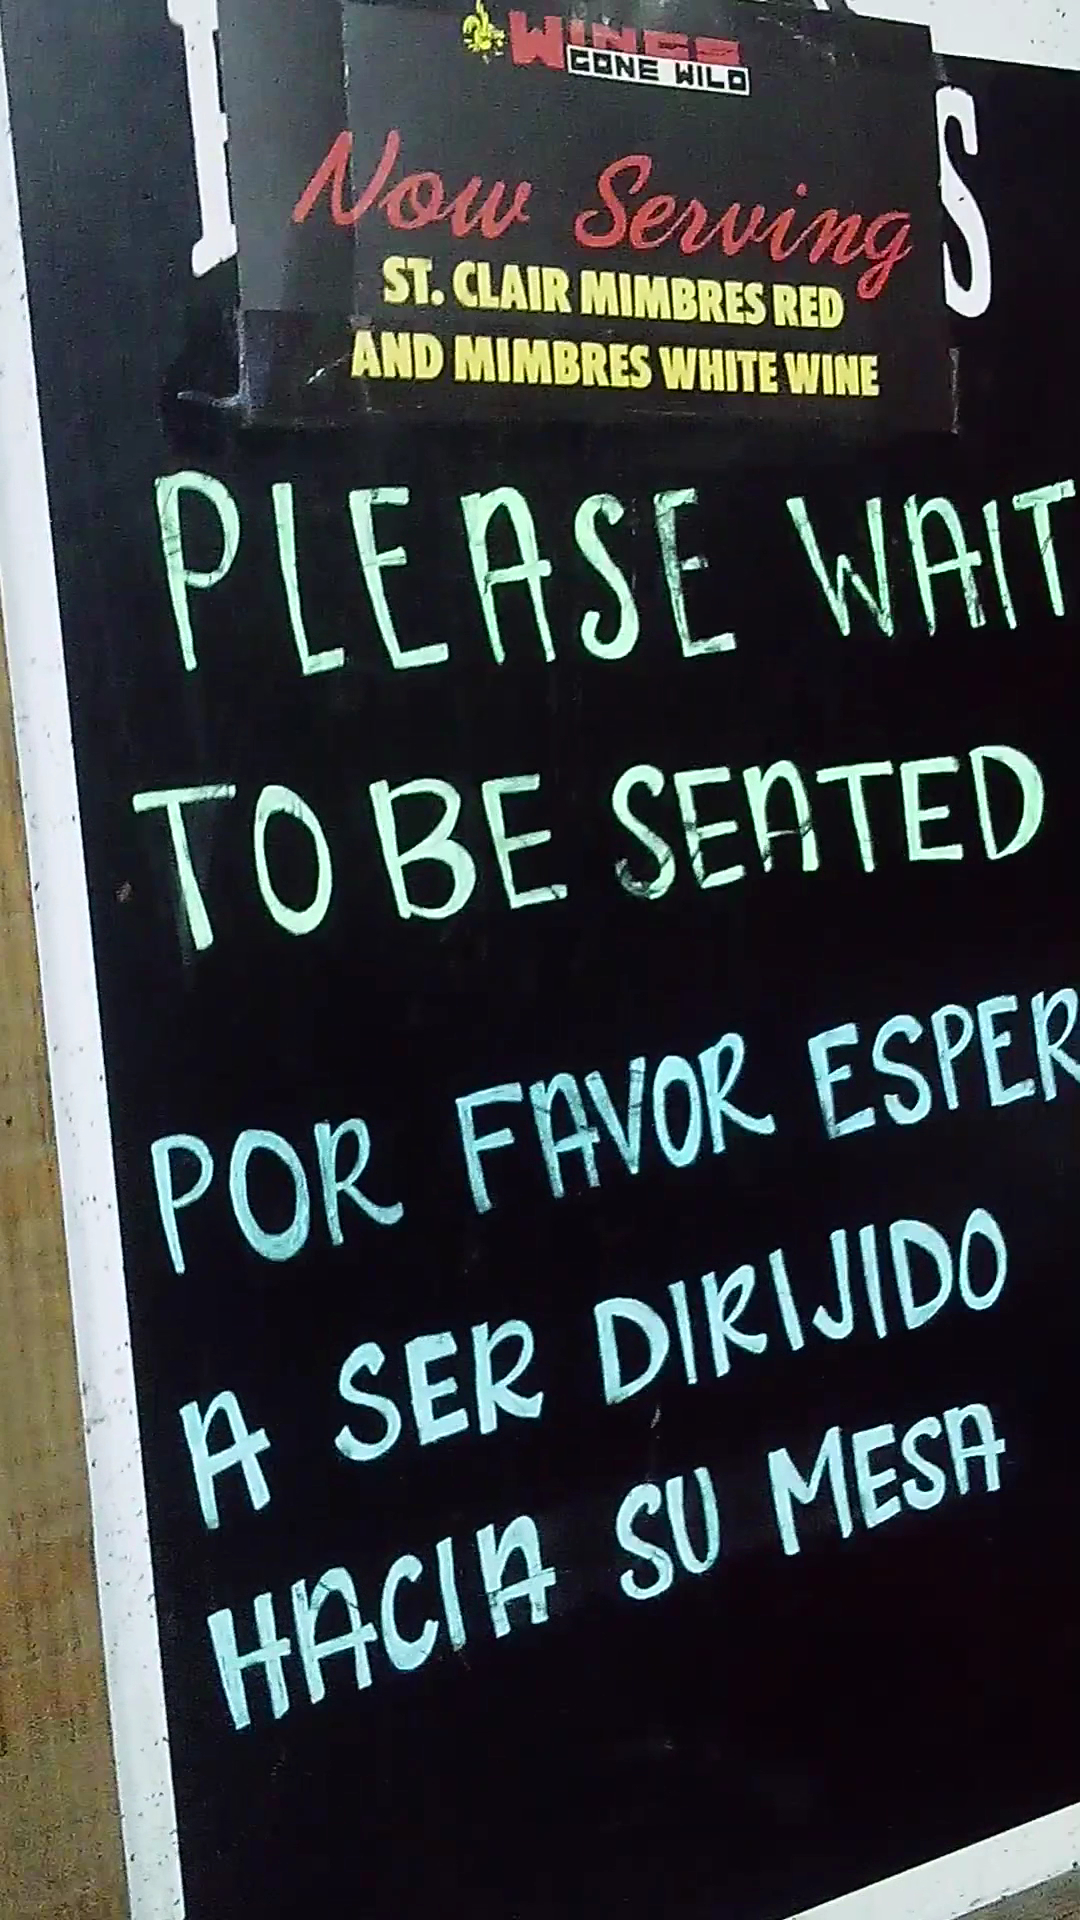 WINGS
GONE WILD
Now Serving
ST. CLAIR MIMBRES RED
AND MIMBRES WHITE WINE
PLEASE WAIT
TO BE SEATED
POR FAVOR ESPER
A SER DIRIJIDO
HACIA SU MESA